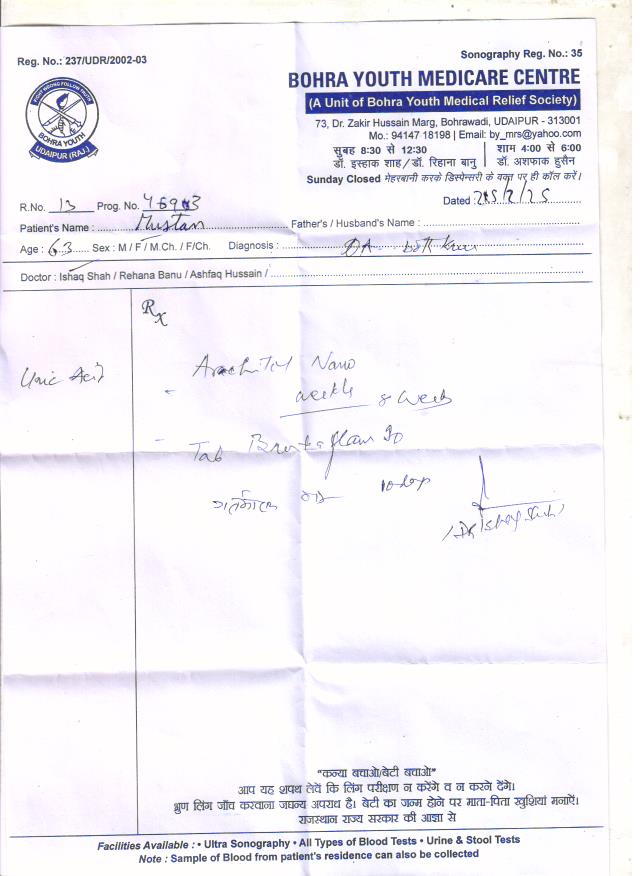 Reg. No.: 237/UDR/2002-03
Sonography Reg. No.: 35
FIGHT WRONG FOLLOW TRUTH
BOHRA YOUTH
UDAIPUR (RAJ.)
BOHRA YOUTH MEDICARE CENTRE
(A Unit of Bohra Youth Medical Relief Society)
73, Dr. Zakir Hussain Marg, Bohrawadi, UDAIPUR - 313001
Mo.: 94147 18198 | Email: by_mrs@yahoo.com
सुबह 8:30 से 12:30 | शाम 4:00 से 6:00
डॉ. इस्हाक शाह/डॉ. रिहाना बानु | डॉ. अशफाक हुसैन
Sunday Closed मेहरबानी करके डिस्पेन्सरी के वक्त पर ही कॉल करें।
R.No. 13 Prog. No.
Dated :
Patient's Name : Mustan Father's / Husband's Name :
Age : 63 Sex : M / F / M.Ch. / F/Ch. Diagnosis : OA both knee
Doctor : Ishaq Shah / Rehana Banu / Ashfaq Hussain /
Rx
Uric Acid
Arachitol Nano
weekly 8 weeks
Tab
10 days
"कन्या बचाओ/बेटी बचाओ"
आप यह शपथ लेवें कि लिंग परीक्षण न करेंगे व न करने देंगे।
भ्रुण लिंग जाँच करवाना जघन्य अपराध है। बेटी का जन्म होने पर माता-पिता खुशियां मनाऐं।
राजस्थान राज्य सरकार की आज्ञा से
Facilities Available : • Ultra Sonography • All Types of Blood Tests • Urine & Stool Tests
Note : Sample of Blood from patient's residence can also be collected